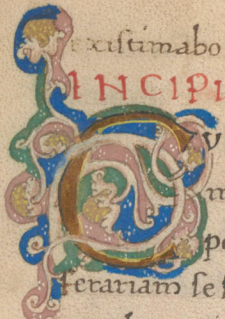 existimabo
INCIPI
C V
m
po
terariam se s